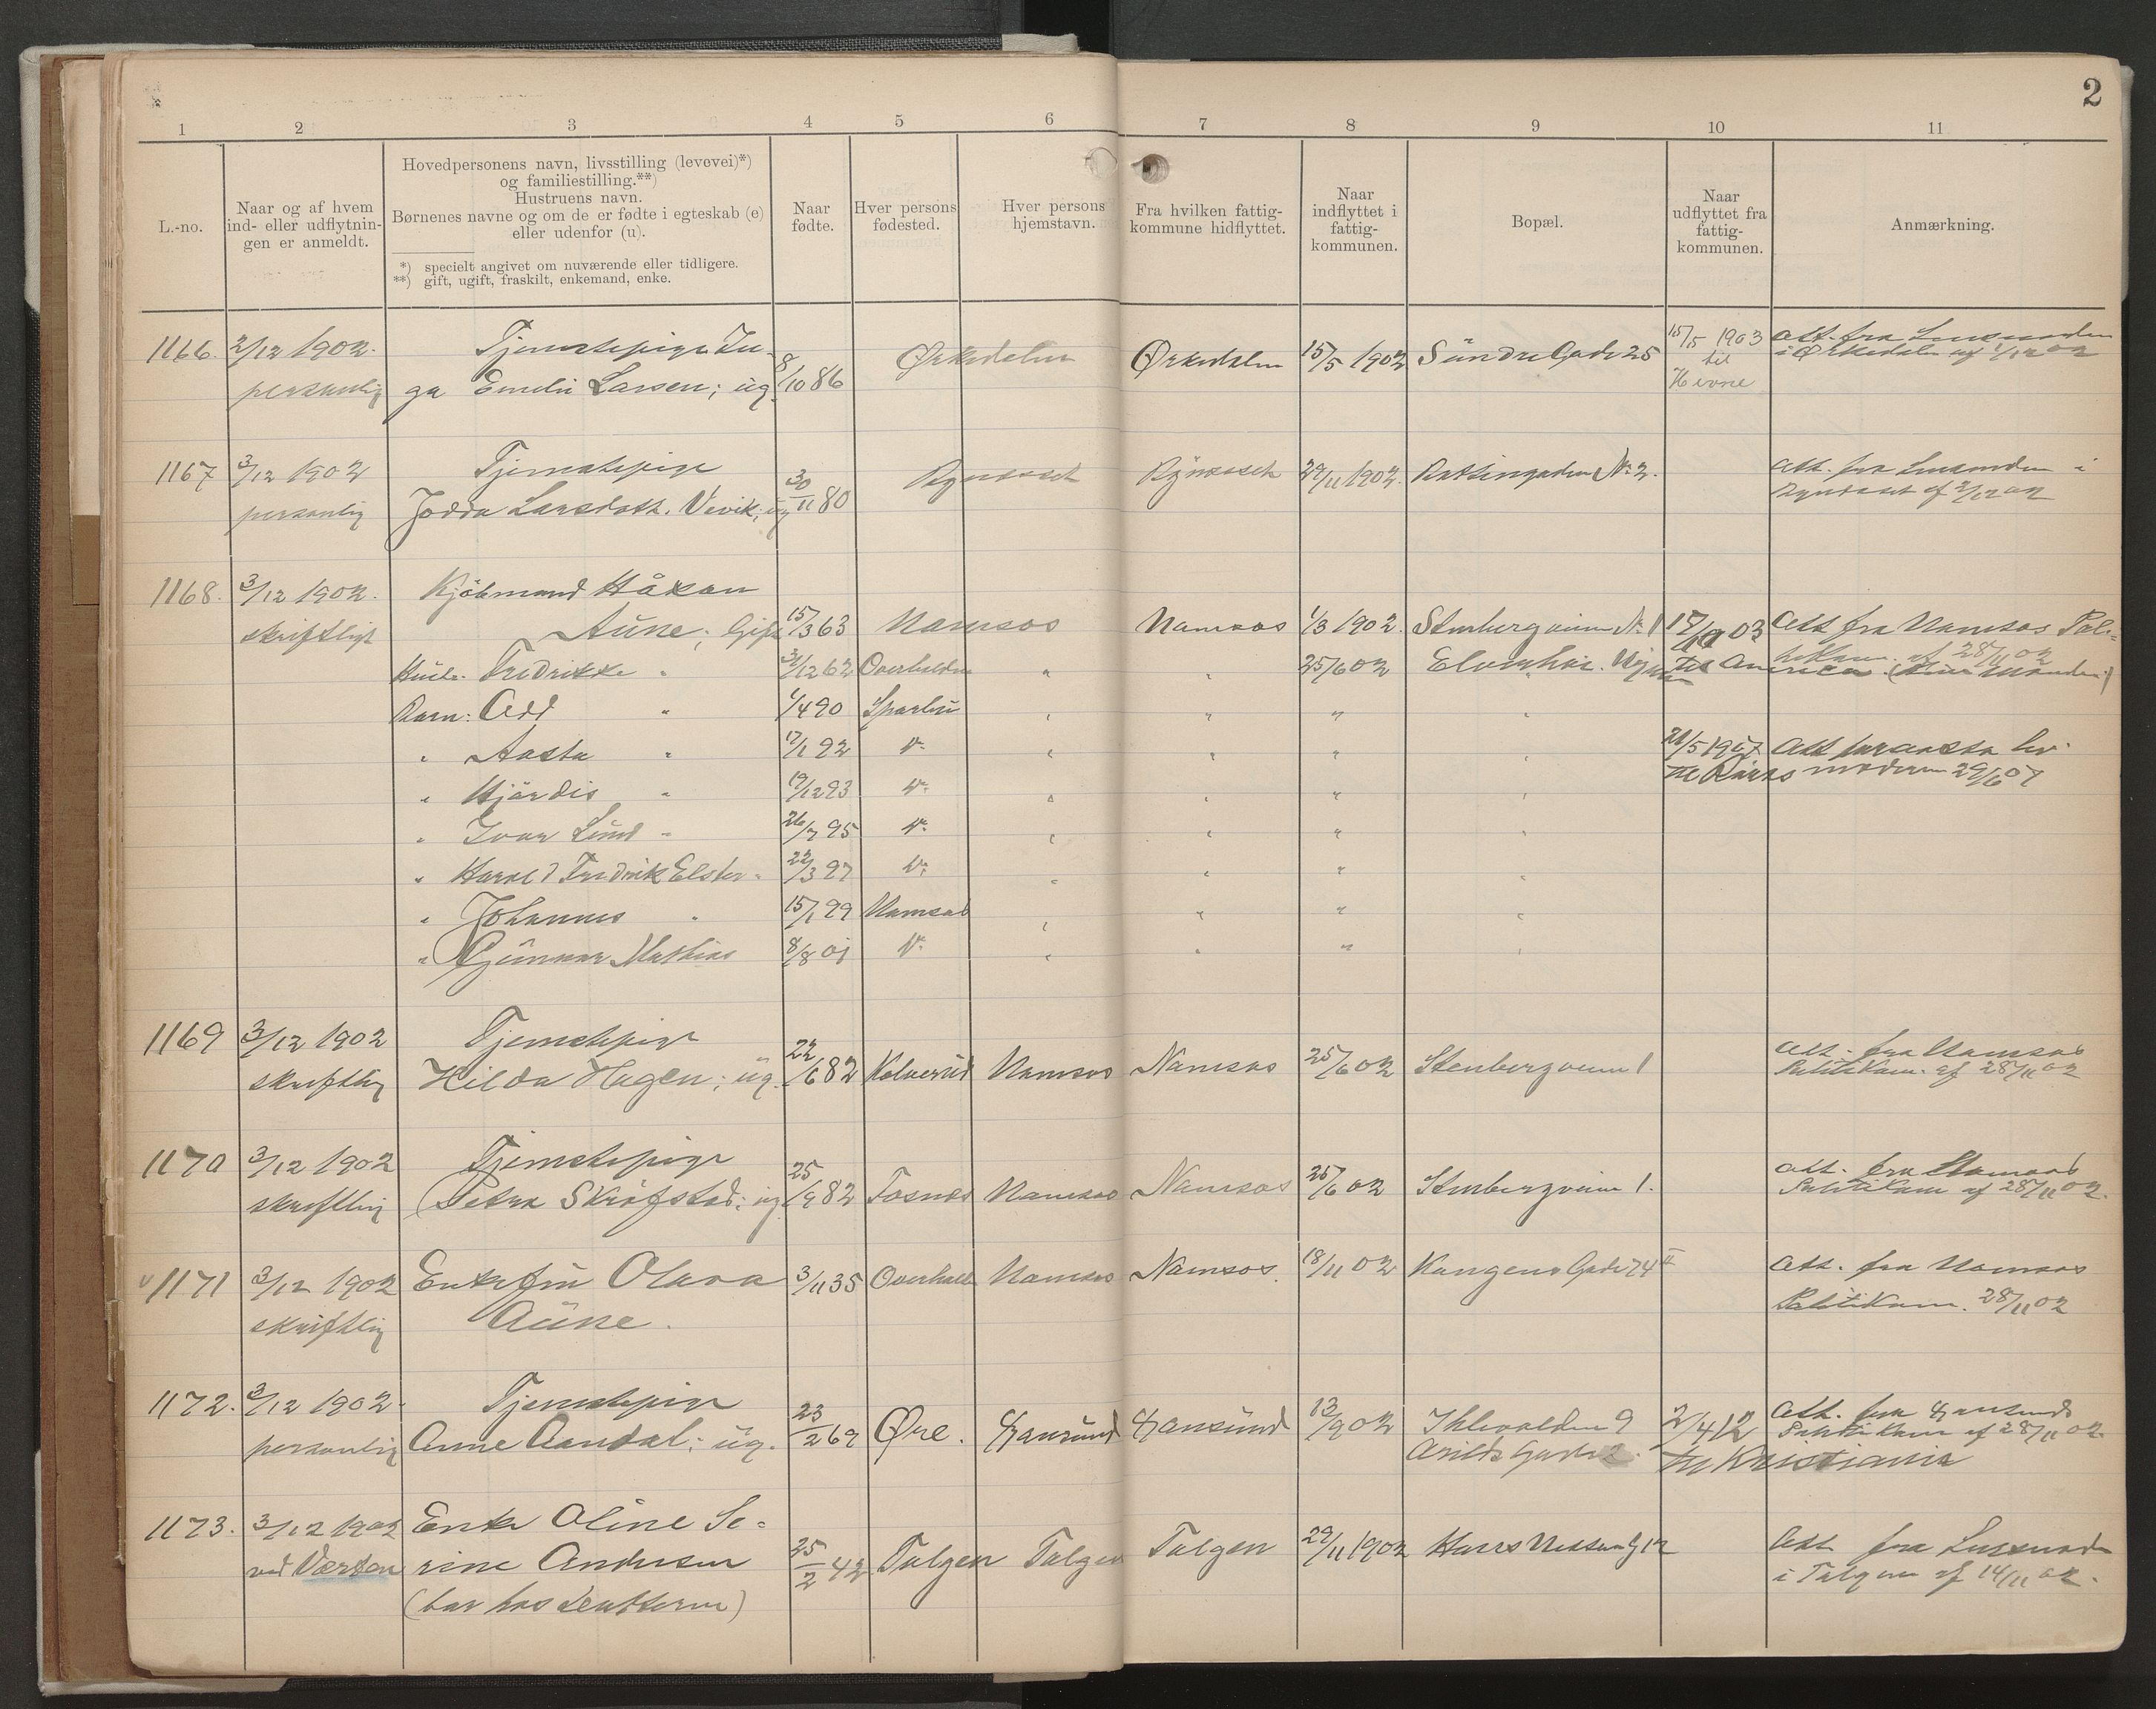 2
1 2 3 4 5 6 7 8 9 10 11
L.-no.
Naar og af hvem
ind- eller udflytnin-
gen er anmeldt.
Hovedpersonens navn, livsstilling (levevei)*)
og familiestilling.**)
Hustruens navn.
Børnenes navne og om de er fødte i egteskab (e)
eller udenfor (u).
*) specielt angivet om nuværende eller tidligere.
**) gift, ugift, fraskilt, enkemand, enke.
Naar
fødte.
Hver persons
fødested.
Hver persons
hjemstavn.
Fra hvilken fattig-
kommune hidflyttet.
Naar
indflyttet i
fattig-
kommunen.
Bopæl.
Naar
udflyttet fra
fattig-
kommunen.
Anmærkning.
1166. 2/12 1902. Tjenestepige In- 8/10 86 Ørkedalen Ørkedalen 15/5 1902 Söndre Gade 25 15/5 1903 Att. fra Lensmanden
personlig ga Emelie Larsen; ug. til i Ørkedalen af 1/12 02
Hevne
1167 3/12 1902 Tjenestepige 30/11 80 Bynesset Bynesset 29/11 1902. No 2. Att. fra Lensmanden i
personlig Jodda Larsdatt. Vevik; ug Bynesset af 2/12 02
1168. 3/12 1902. Kjöbmand Håkon
skriftligt Aune; Gift 15/3 63 Namsos Namsos 1/3 1902. Stenbergveien No 1 03 Att fra Namsos Poli-
Hustr. Fredrikke " 62 Overhalden " " 25/6 02 til America af 28/11 02
Barn: Odd " 1/4 90 Sparbu " " " "
" Aasta " 17/1 92 do " " " " 21/5 1907 Att
til Røros moderen 29/6 07
" Hjördis " 19/12 93 do " " " "
" Ivar Lund " 26/7 95 do " " " "
" Harald Fredrik Elster " 22/3 97 do " " " "
" Johannes " 15/1 99 Namsos " " " "
" Gunnar Mathias 8/8 01 do " " " "
1169 3/12 1902 Tjenestepige
skriftlig Hilda Hagen; ug. 22/6 82 Kolvereid Namsos Namsos 25/6 02 Stenbergveien 1 Att. fra Namsos
Politikam. af 28/11 02
1170 3/12 1902 Tjenestepige
skriftlig Petra Skrøfstad; ug. 25/9 82 Fosnes Namsos Namsos 25/6 02 Stenbergveien 1. Att. fra Namsos
Politikam af 28/11 02.
1171 3/12 1902 Enkefru Olava 3/11 35 Overhall Namsos Namsos. 18/11 02 Kongens Gade 74 II Att. fra Namsos
skriftlig Aune. Politikam. 28/11 02
1172. 3/12 1902. Tjenestepige
personlig Anne Aandal; ug. 23/2 69 Øre. Xansund Xansund 13/9 02 Ihlevolden 9 2/4 12 Att. fra Xansunds
til Kristiania Politikam af 28/11 02.
1173. 3/12 1902 Enke Oline Se-
ved Værten rine Andersen 25/2 42 Tolgen Tolgen Tolgen 29/11 1902 Hans Nissens G 12 Att fra Lensmanden
(bor hos datteren) i Tolgen af 14/11 02.